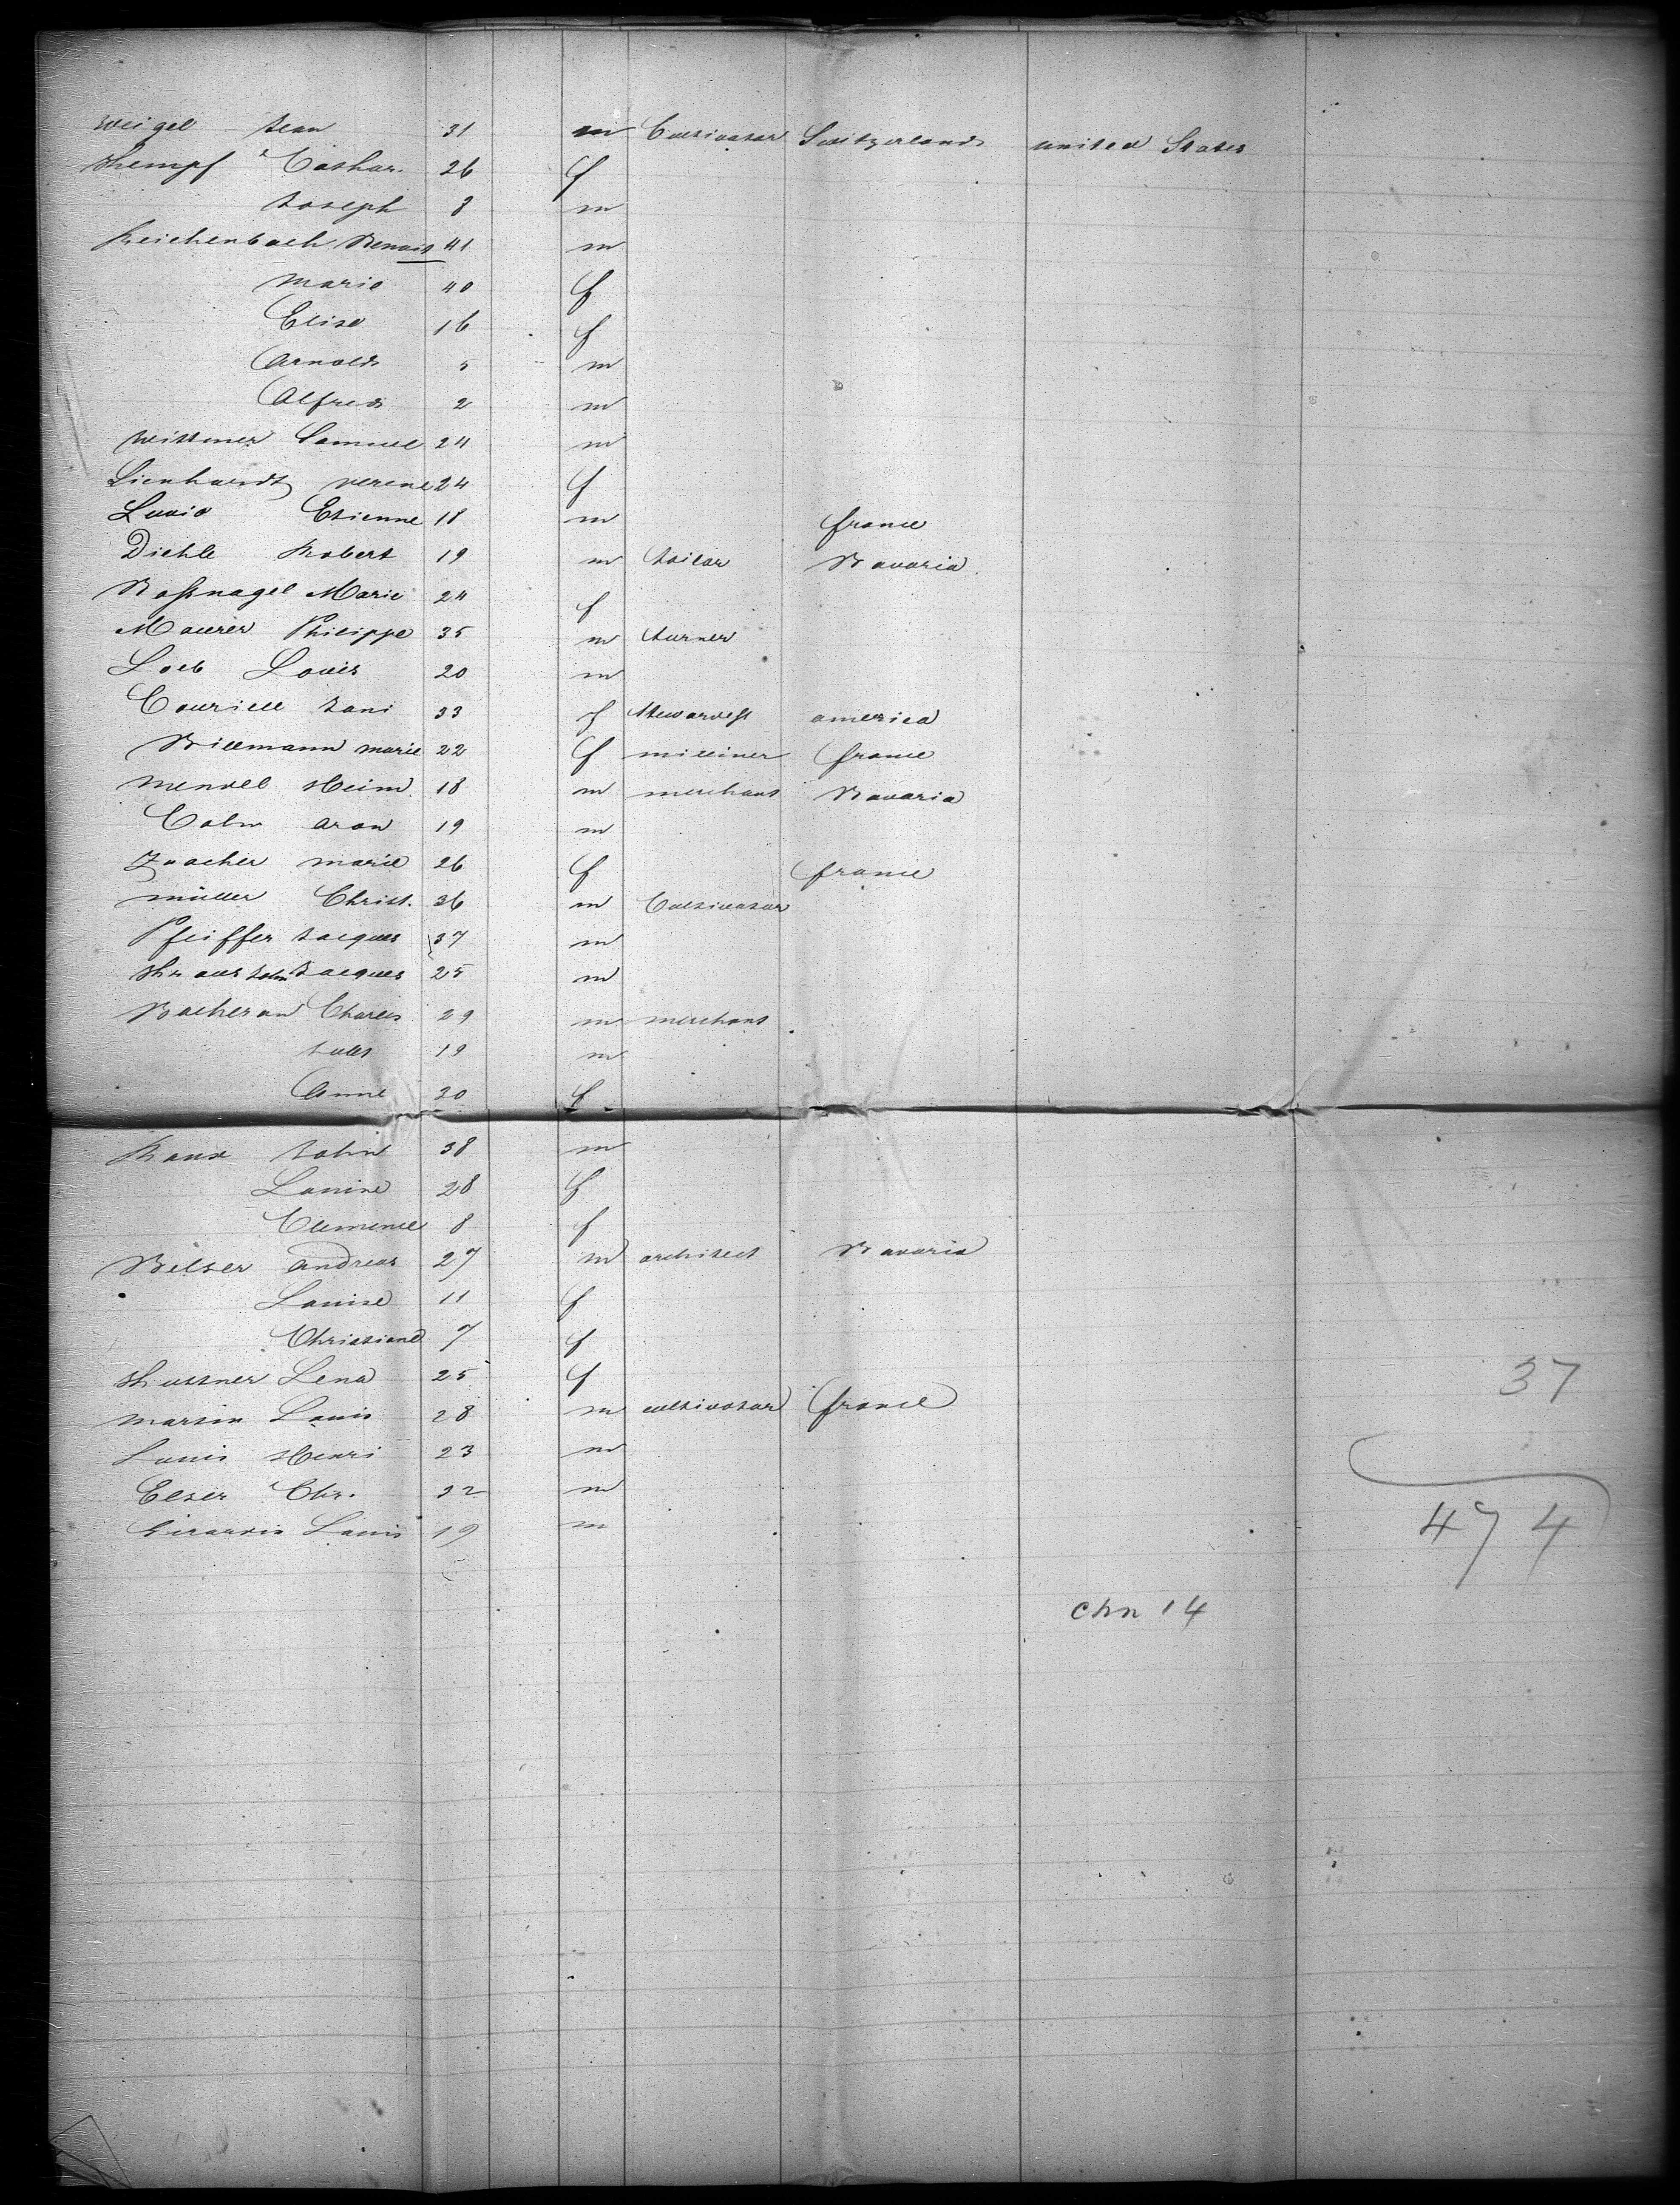 Weigel Jean 31 m Cultivator Switzerland united States
Kempf Cathar. 26 f
Joseph 8 m
Reichenbach Benoit 41 m
Marie 40 f
Elise 16 f
Arnold 5 m
Alfred 2 m
Wittmer Samuel 24 m
Lienhardt verene 24 f
Etienne 18 m france
Diehle Robert 19 m tailor Bavaria
Roßnagel Marie 24 f
Maurer Philippe 35 m turner
Loeb Louis 20 m
Couriell Jani 33 f Stewardeß america
Billmann marie 22 f milliner france
Mendel Heim. 18 m merchant Bavaria
Cahn aron 19 m
marie 26 f france
müller Christ. 36 m Cultivator
Pfeiffer Jacques 37 m
Jacques 25 m
Bacheran Charles 29 m merchant
Jules 19 m
Anne 30 f
Roux John 38 m
Louise 28 f
Clemence 8 f
Belser Andreas 27 m architect Bavaria
Louise 11 f
Christiane 7 f
Kustner Lena 25 f
Martin Louis 28 m cultivator france
Louis Henri 23 m
Elser Chr. 32 m
Girardin Louis 19 m
37
474
chn 14